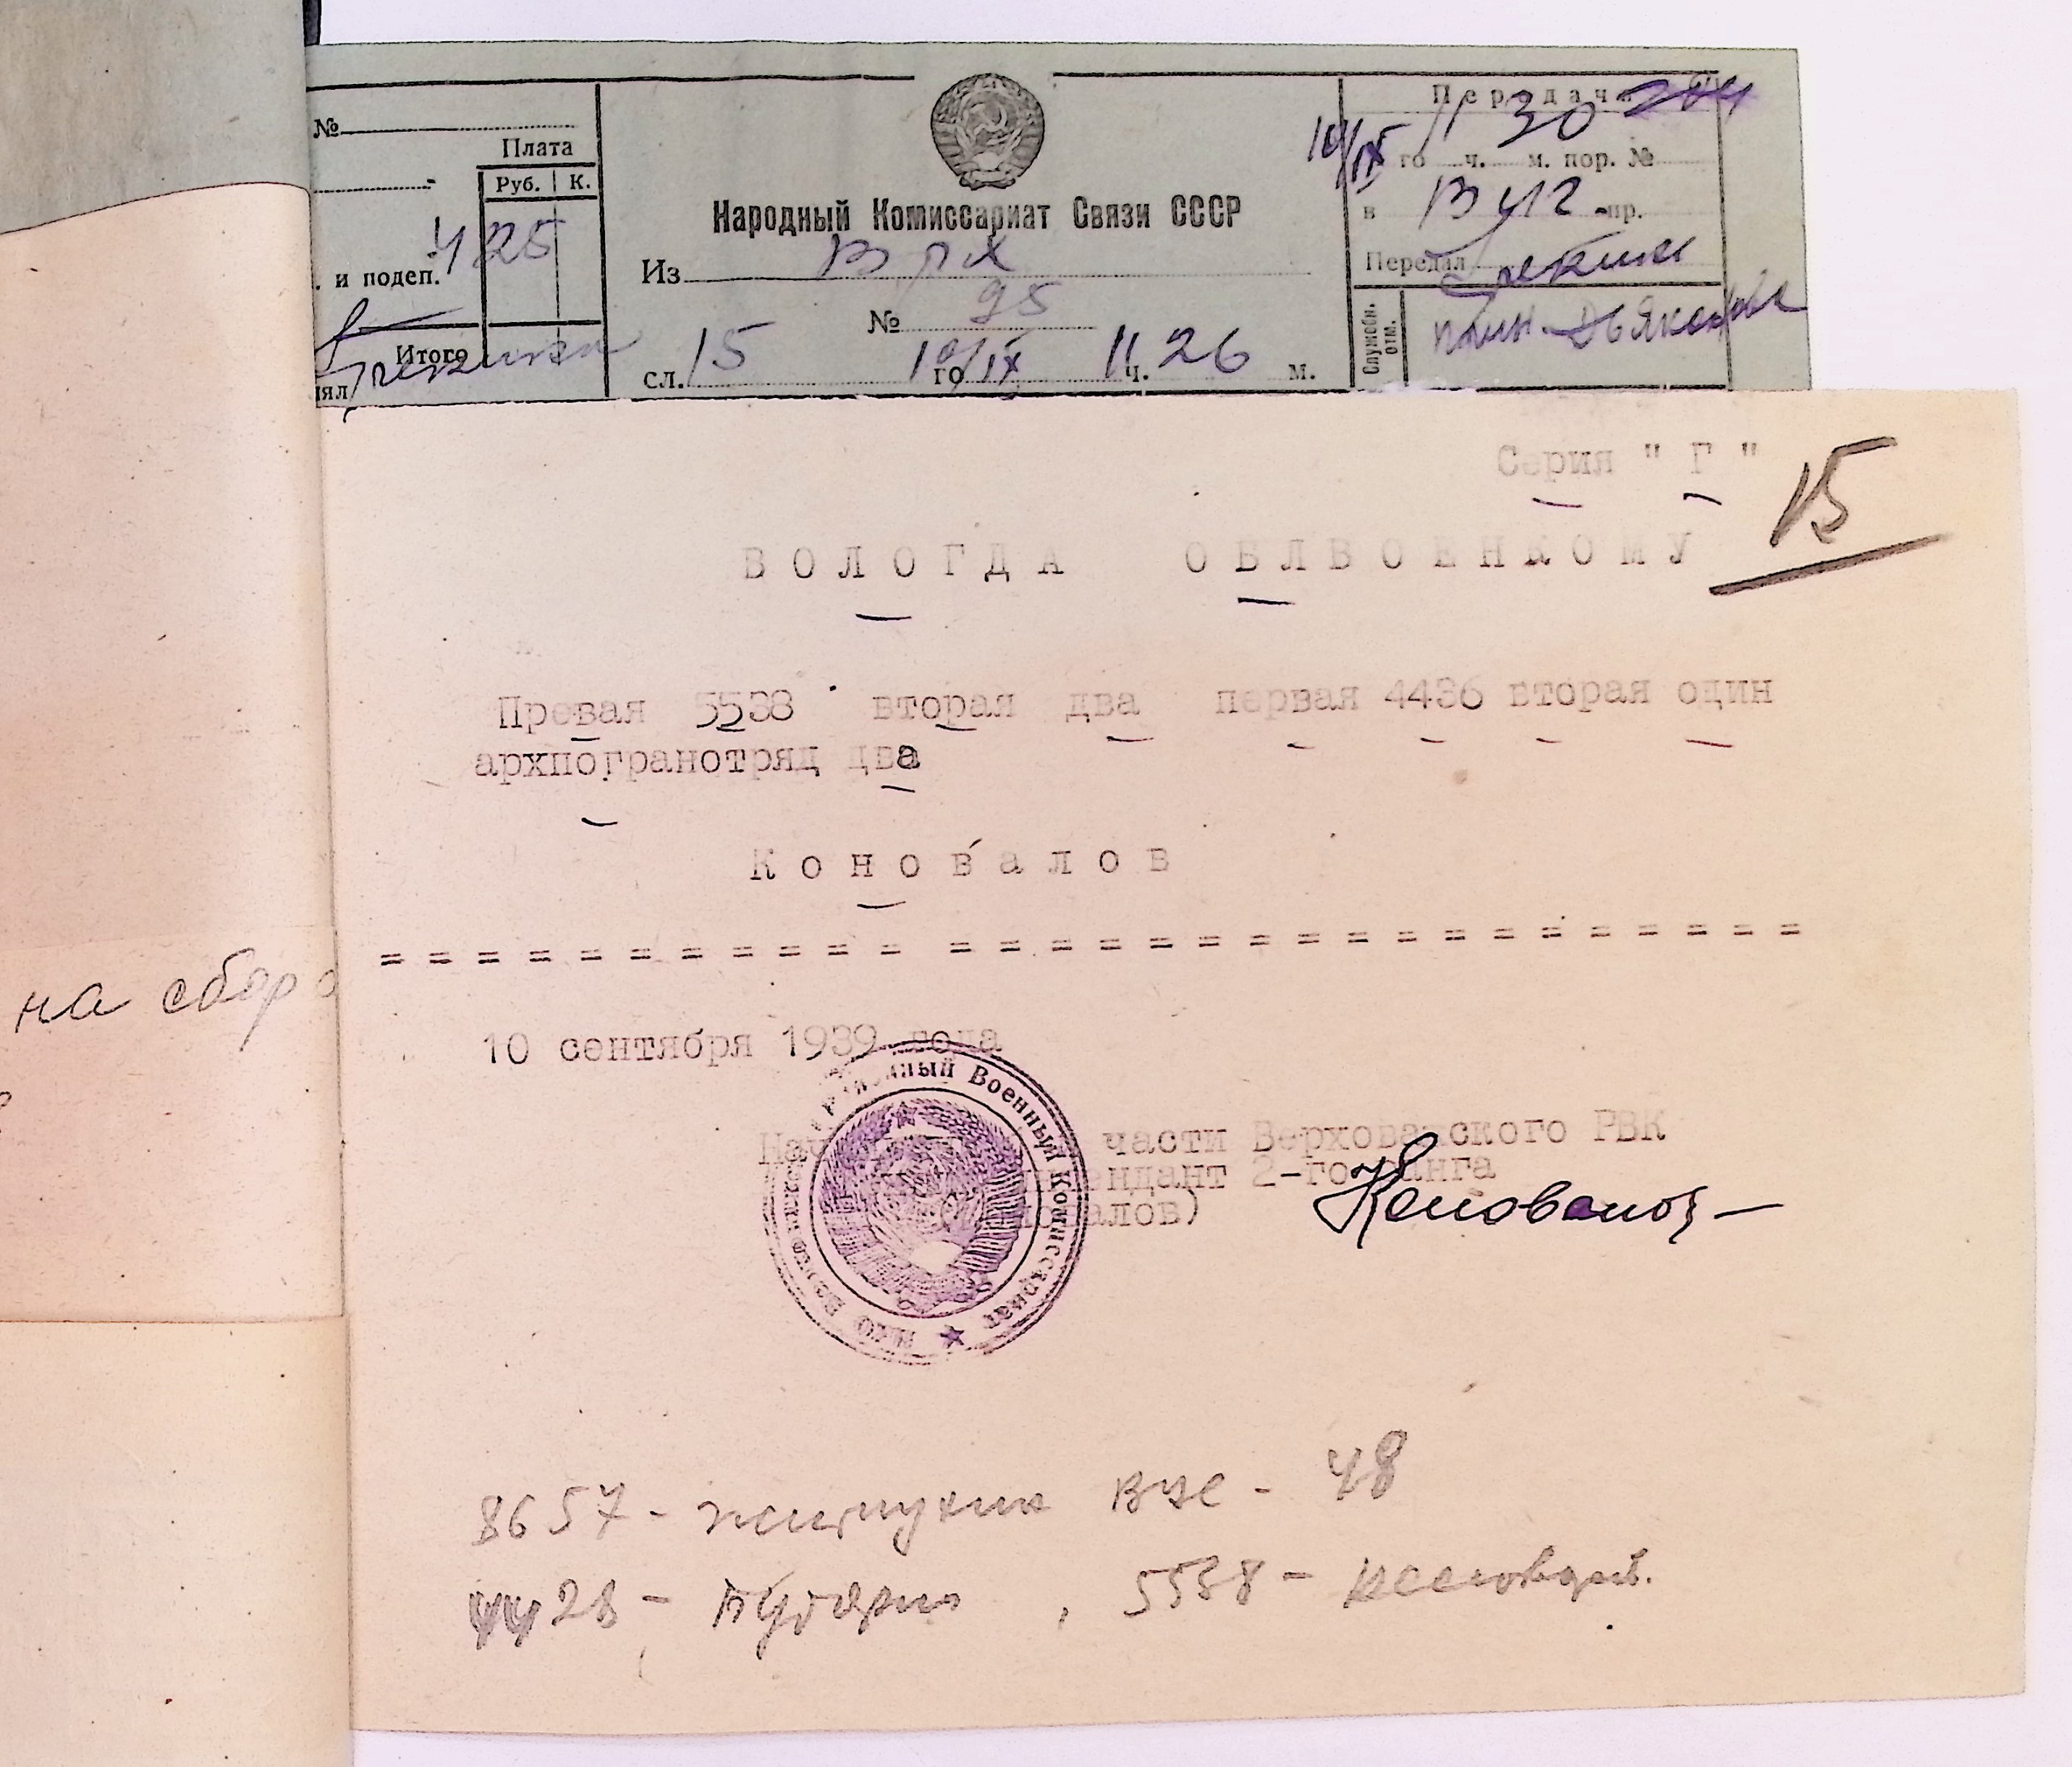 №
Плата
Руб. К.
4 25
. и подеп.
Итого
Народный Комиссариат Связи СССР
Из Врх
№ 95
сл. 15 10/IX го 11 ч. 26 м.
Передача
10/IX го 11 ч. 30 м. пор. №
в -пр.
Передал
Служебн. отм.
Серия " Г "
15
ВОЛОГДА ОБЛВОЕНКОМУ
Превая 5538 вторая два первая 4436 вторая один
архпогранотряд два
Коновалов
на сбор
10 сентября 1939 года
части Верховажского РВК
2-го ранга
Коновалов
Районный Военный Комиссариат
НКО
8657 - 48
4428 - , 5538 -